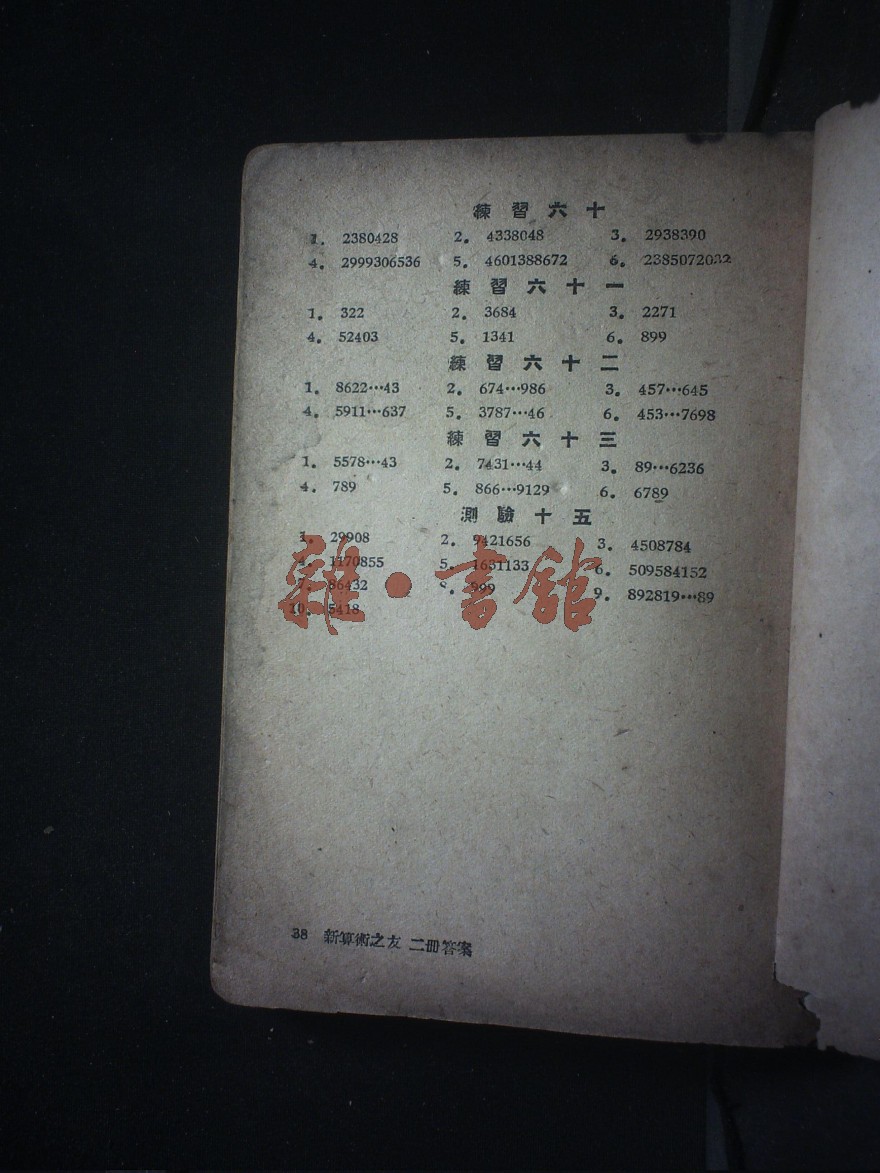 練習六十
1. 2380428 2. 4338048 3. 2938390
4. 2999306536 5. 4601388672 6. 2385072032
練習六十一
1. 322 2. 3684 3. 2271
4. 52403 5. 1341 6. 899
練習六十二
1. 8622…43 2. 674…986 3. 457…645
4. 5911…637 5. 3787…46 6. 453…7698
練習六十三
1. 5578…43 2. 7431…44 3. 89…6236
4. 789 5. 866…9129 6. 6789
測驗十五
1. 29908 2. 9421656 3. 4508784
4. 1170855 5. 1631133 6. 509584152
7. 86432 8. 999 9. 892819…89
10. 5418
雜·書館
38 新算術之友 二冊答案